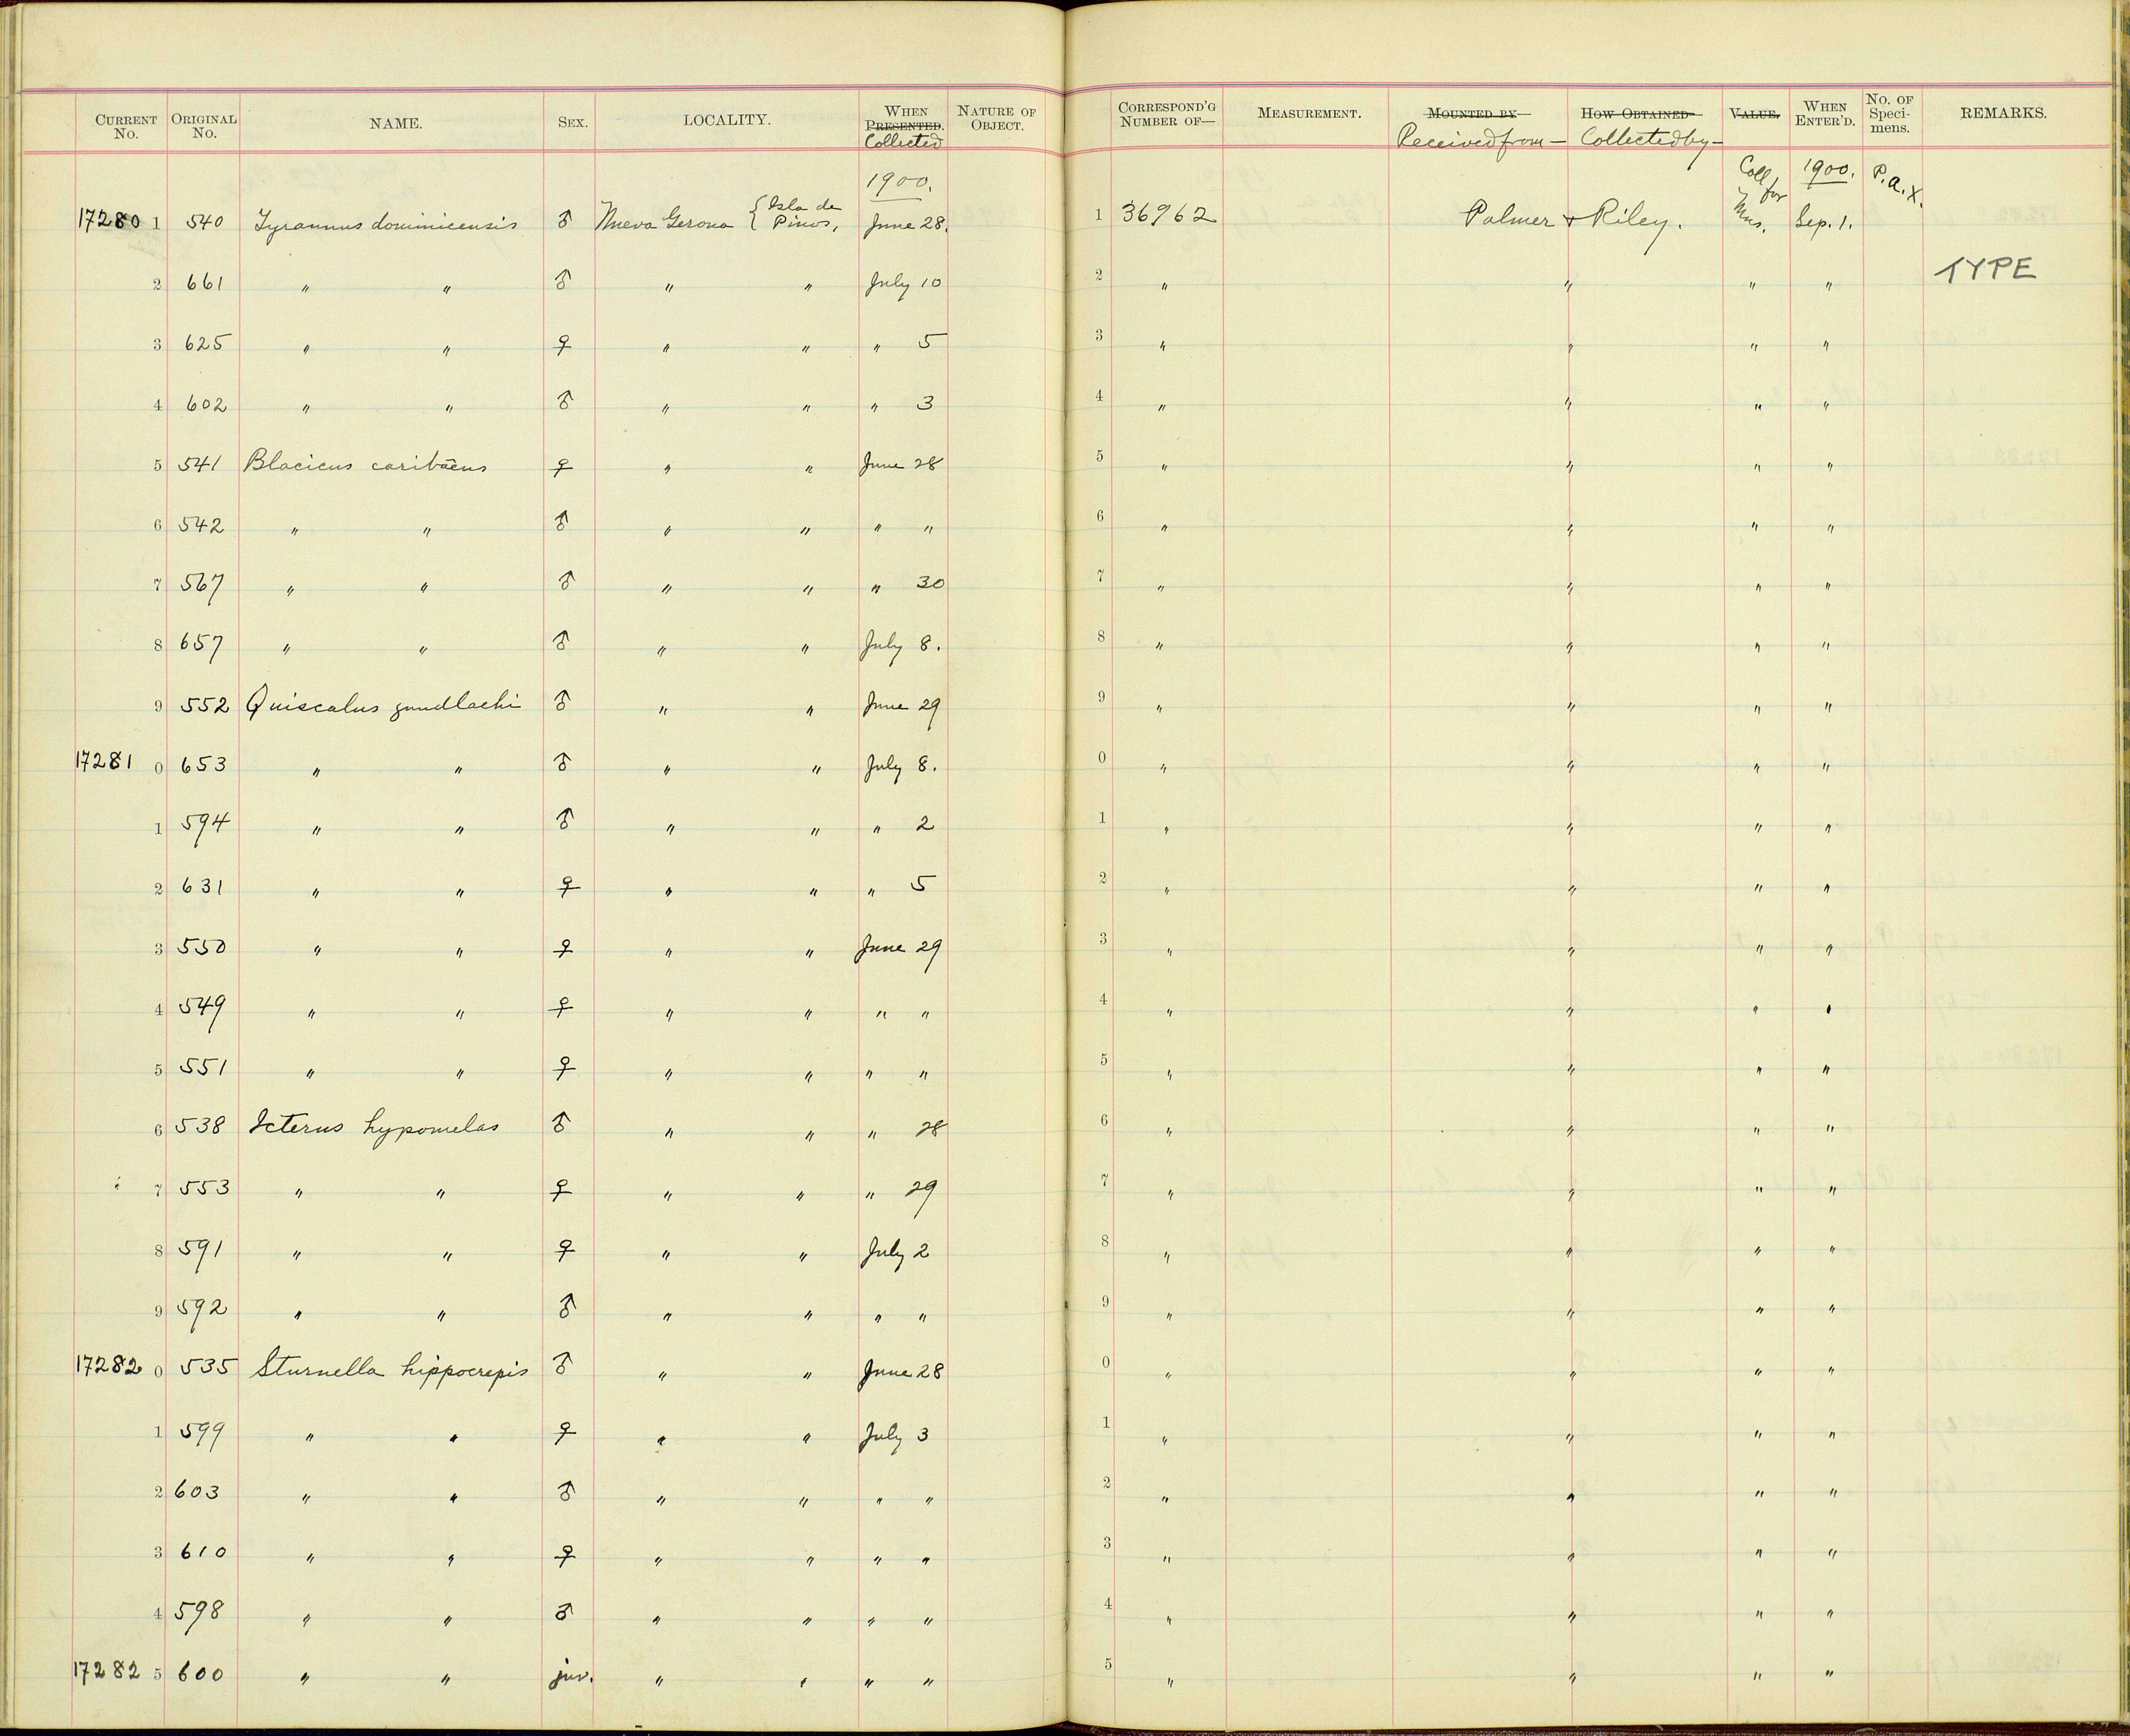 CURRENT No. ORIGINAL No. NAME. SEX. LOCALITY. WHEN PRESENTED. Collected NATURE OF OBJECT. CORRESPOND'G NUMBER OF— MEASUREMENT. MOUNTED BY— Received from— HOW OBTAINED— Collected by— VALUE. WHEN ENTER'D. No. OF Speci- mens. REMARKS.
1900. Coll for Mus. 1900. P.a.X.
17280 1 540 Tyrannus dominicensis ♂ Nueva Gerona { Isla de Pinos, June 28. 1 36962 Palmer + Riley. Sep. 1.
2 661 " " ♂ " " July 10 2 " " " " TYPE
3 625 " " ♀ " " " 5 3 " " " "
4 602 " " ♂ " " " 3 4 " " " "
5 541 Blacicus caribaeus ♀ " " June 28 5 " " " "
6 542 " " ♂ " " " " 6 " " " "
7 567 " " ♂ " " " 30 7 " " " "
8 657 " " ♂ " " July 8. 8 " " " "
9 552 Quiscalus gundlachi ♂ " " June 29 9 " " " "
17281 0 653 " " ♂ " " July 8. 0 " " " "
1 594 " " ♂ " " " 2 1 " " " "
2 631 " " ♀ " " " 5 2 " " " "
3 550 " " ♀ " " June 29 3 " " " "
4 549 " " ♀ " " " " 4 " " " "
5 551 " " ♀ " " " " 5 " " " "
6 538 Icterus hypomelas ♂ " " " 28 6 " " " "
7 553 " " ♀ " " " 29 7 " " " "
8 591 " " ♀ " " July 2 8 " " " "
9 592 " " ♂ " " " " 9 " " " "
17282 0 535 Sturnella hippocrepis ♂ " " June 28 0 " " " "
1 599 " " ♀ " " July 3 1 " " " "
2 603 " " ♂ " " " " 2 " " " "
3 610 " " ♀ " " " " 3 " " " "
4 598 " " ♂ " " " " 4 " " " "
17282 5 600 " " juv. " " " " 5 " " " "